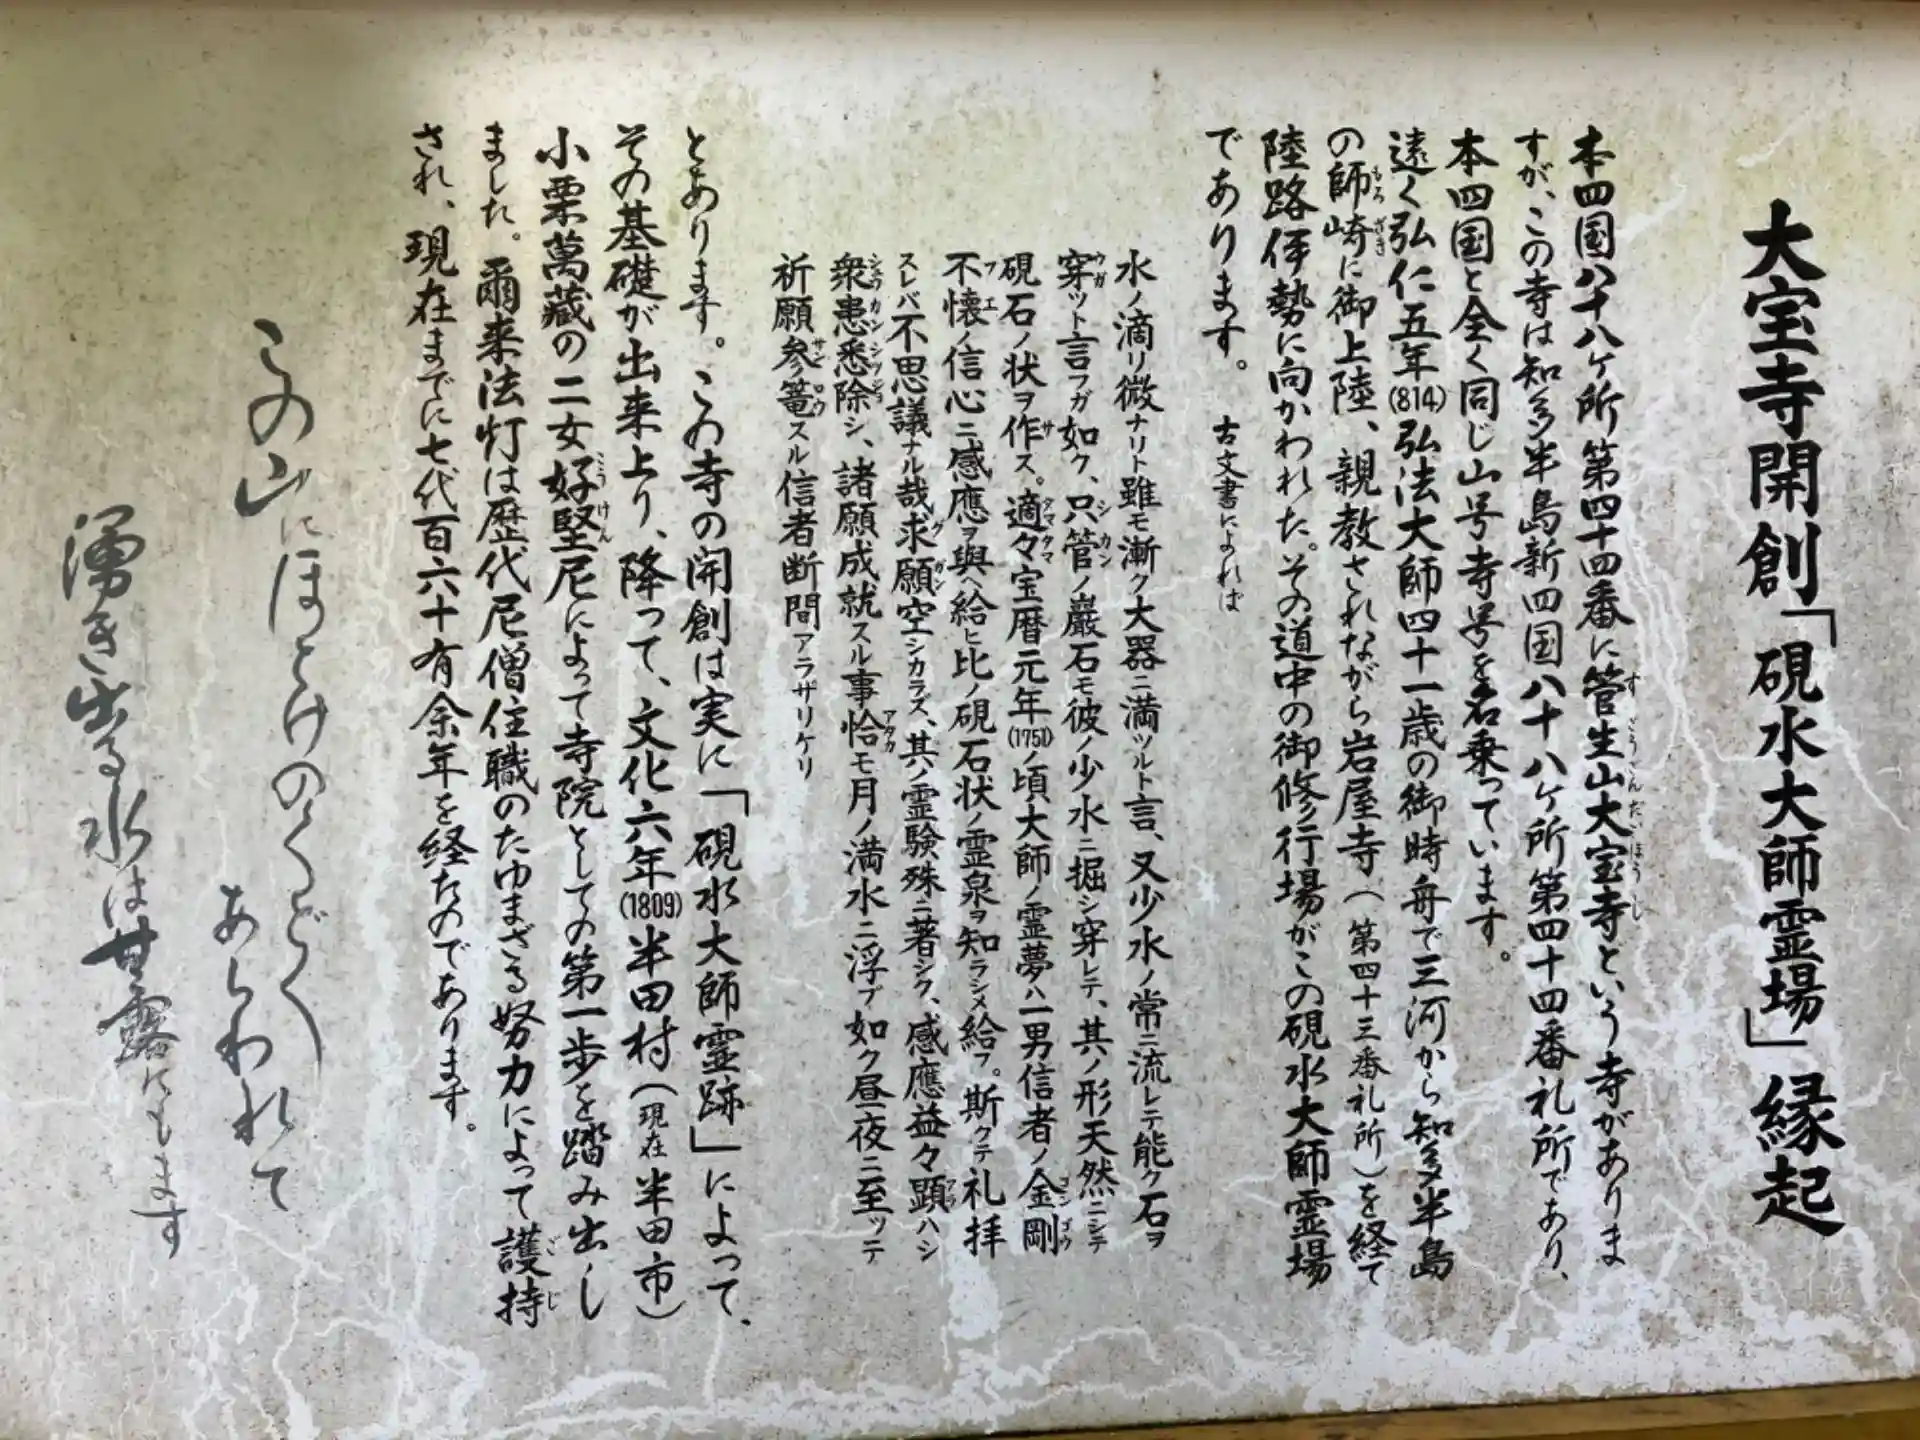 大宝寺開創「硯水大師霊場」縁起
本四国八十八ヶ所第四十四番に管生山大宝寺という寺がありま
すが、この寺は知多半島新四国八十八ヶ所第四十四番札所であり、
本四国と全く同じ山号寺号を名乗っています。
遠く弘仁五年(814)弘法大師四十一歳の御時舟で三河から知多半島
の師崎に御上陸、親教されながら岩屋寺(第四十三番札所)を経て
陸路伊勢に向かわれた。その道中の御修行場がこの硯水大師霊場
であります。 古文書によれば
水ノ滴リ微ナリト雖モ漸ク大器ニ満ツルト言、又少水ノ常ニ流レテ能ク石ヲ
穿ツト言フガ如ク、只管ノ巖石モ彼ノ少水ニ掘シ穿レテ、其ノ形天然ニシテ
硯石ノ状ヲ作ス。適々宝暦元年(1751)ノ頃大師ノ霊夢ハ一男信者ノ金剛
不懐ノ信心ニ感應ヲ與ヘ給ヒ比ノ硯石状ノ霊泉ヲ知ラシメ給フ。斯クテ礼拝
スレバ不思議ナル哉求願空シカラズ、其ノ霊験殊ニ著シク、感應益々顕ハシ
衆患悉除シ、諸願成就スル事恰モ月ノ満水ニ浮ブ如ク昼夜ニ至ッテ
祈願参篭スル信者断間アラザリケリ
とあります。この寺の開創は実に「硯水大師霊跡」によって、
その基礎が出来上り、降って、文化六年(1809)半田村(現在半田市)
小栗萬蔵の二女好堅尼によって寺院としての第一歩を踏み出し
ました。爾来法灯は歴代尼僧住職のたゆまざる努力によって護持
され、現在までに七代百六十有余年を経たのであります。
この山にほとけのくどく
あらわれて
湧き出る水は甘露にもます